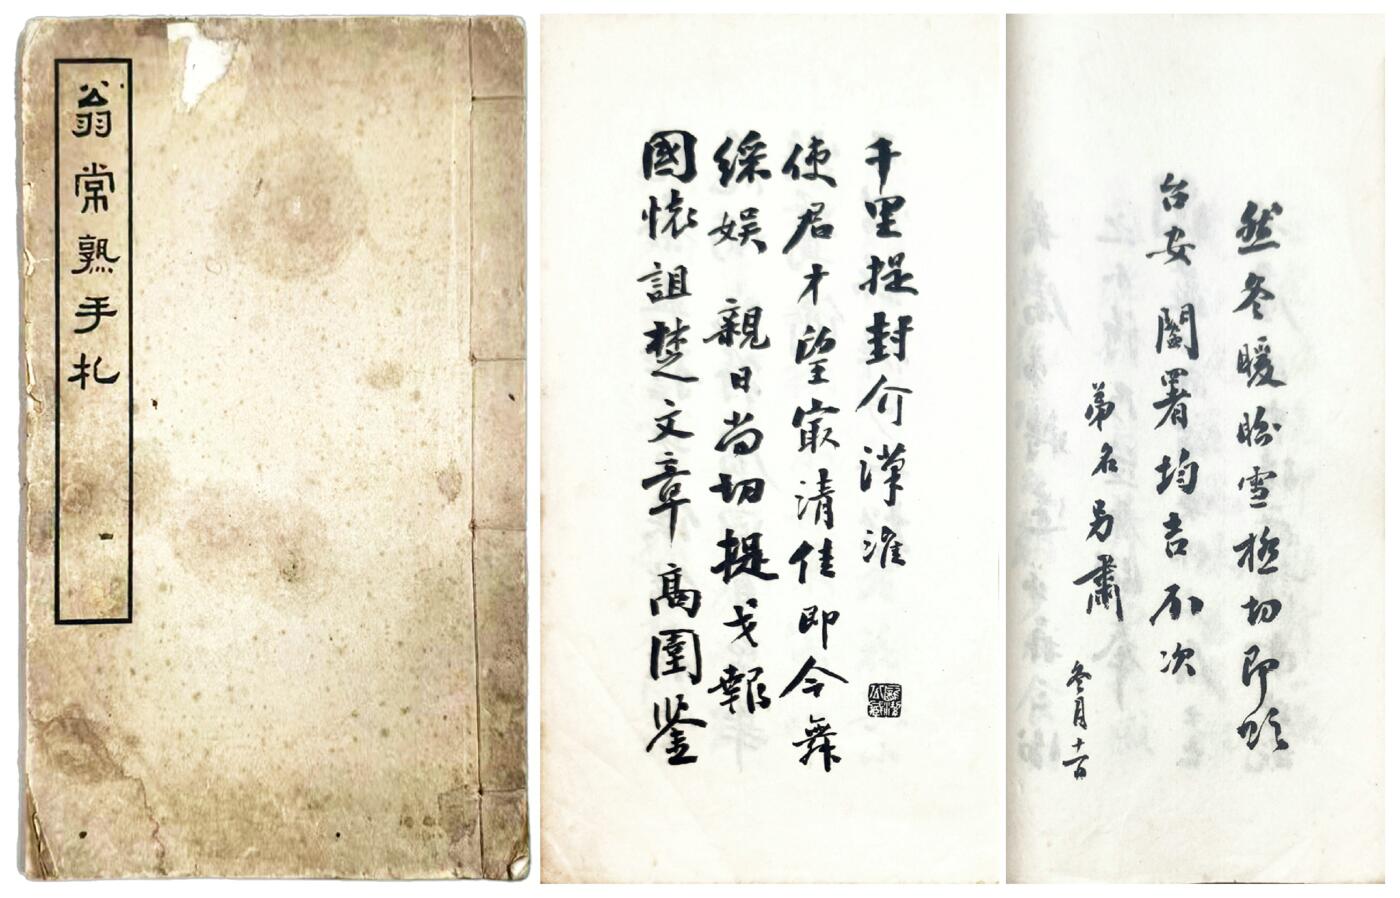 翁常熟手札
千里提封介漢淮
使君才望寂清佳即今舞
綵娱親日尚切提戈報
國懷詛楚文章高圍鑒
然冬暖盼雪極切即頌
台安闔署均吉不次
弟名另肅
冬月十一日